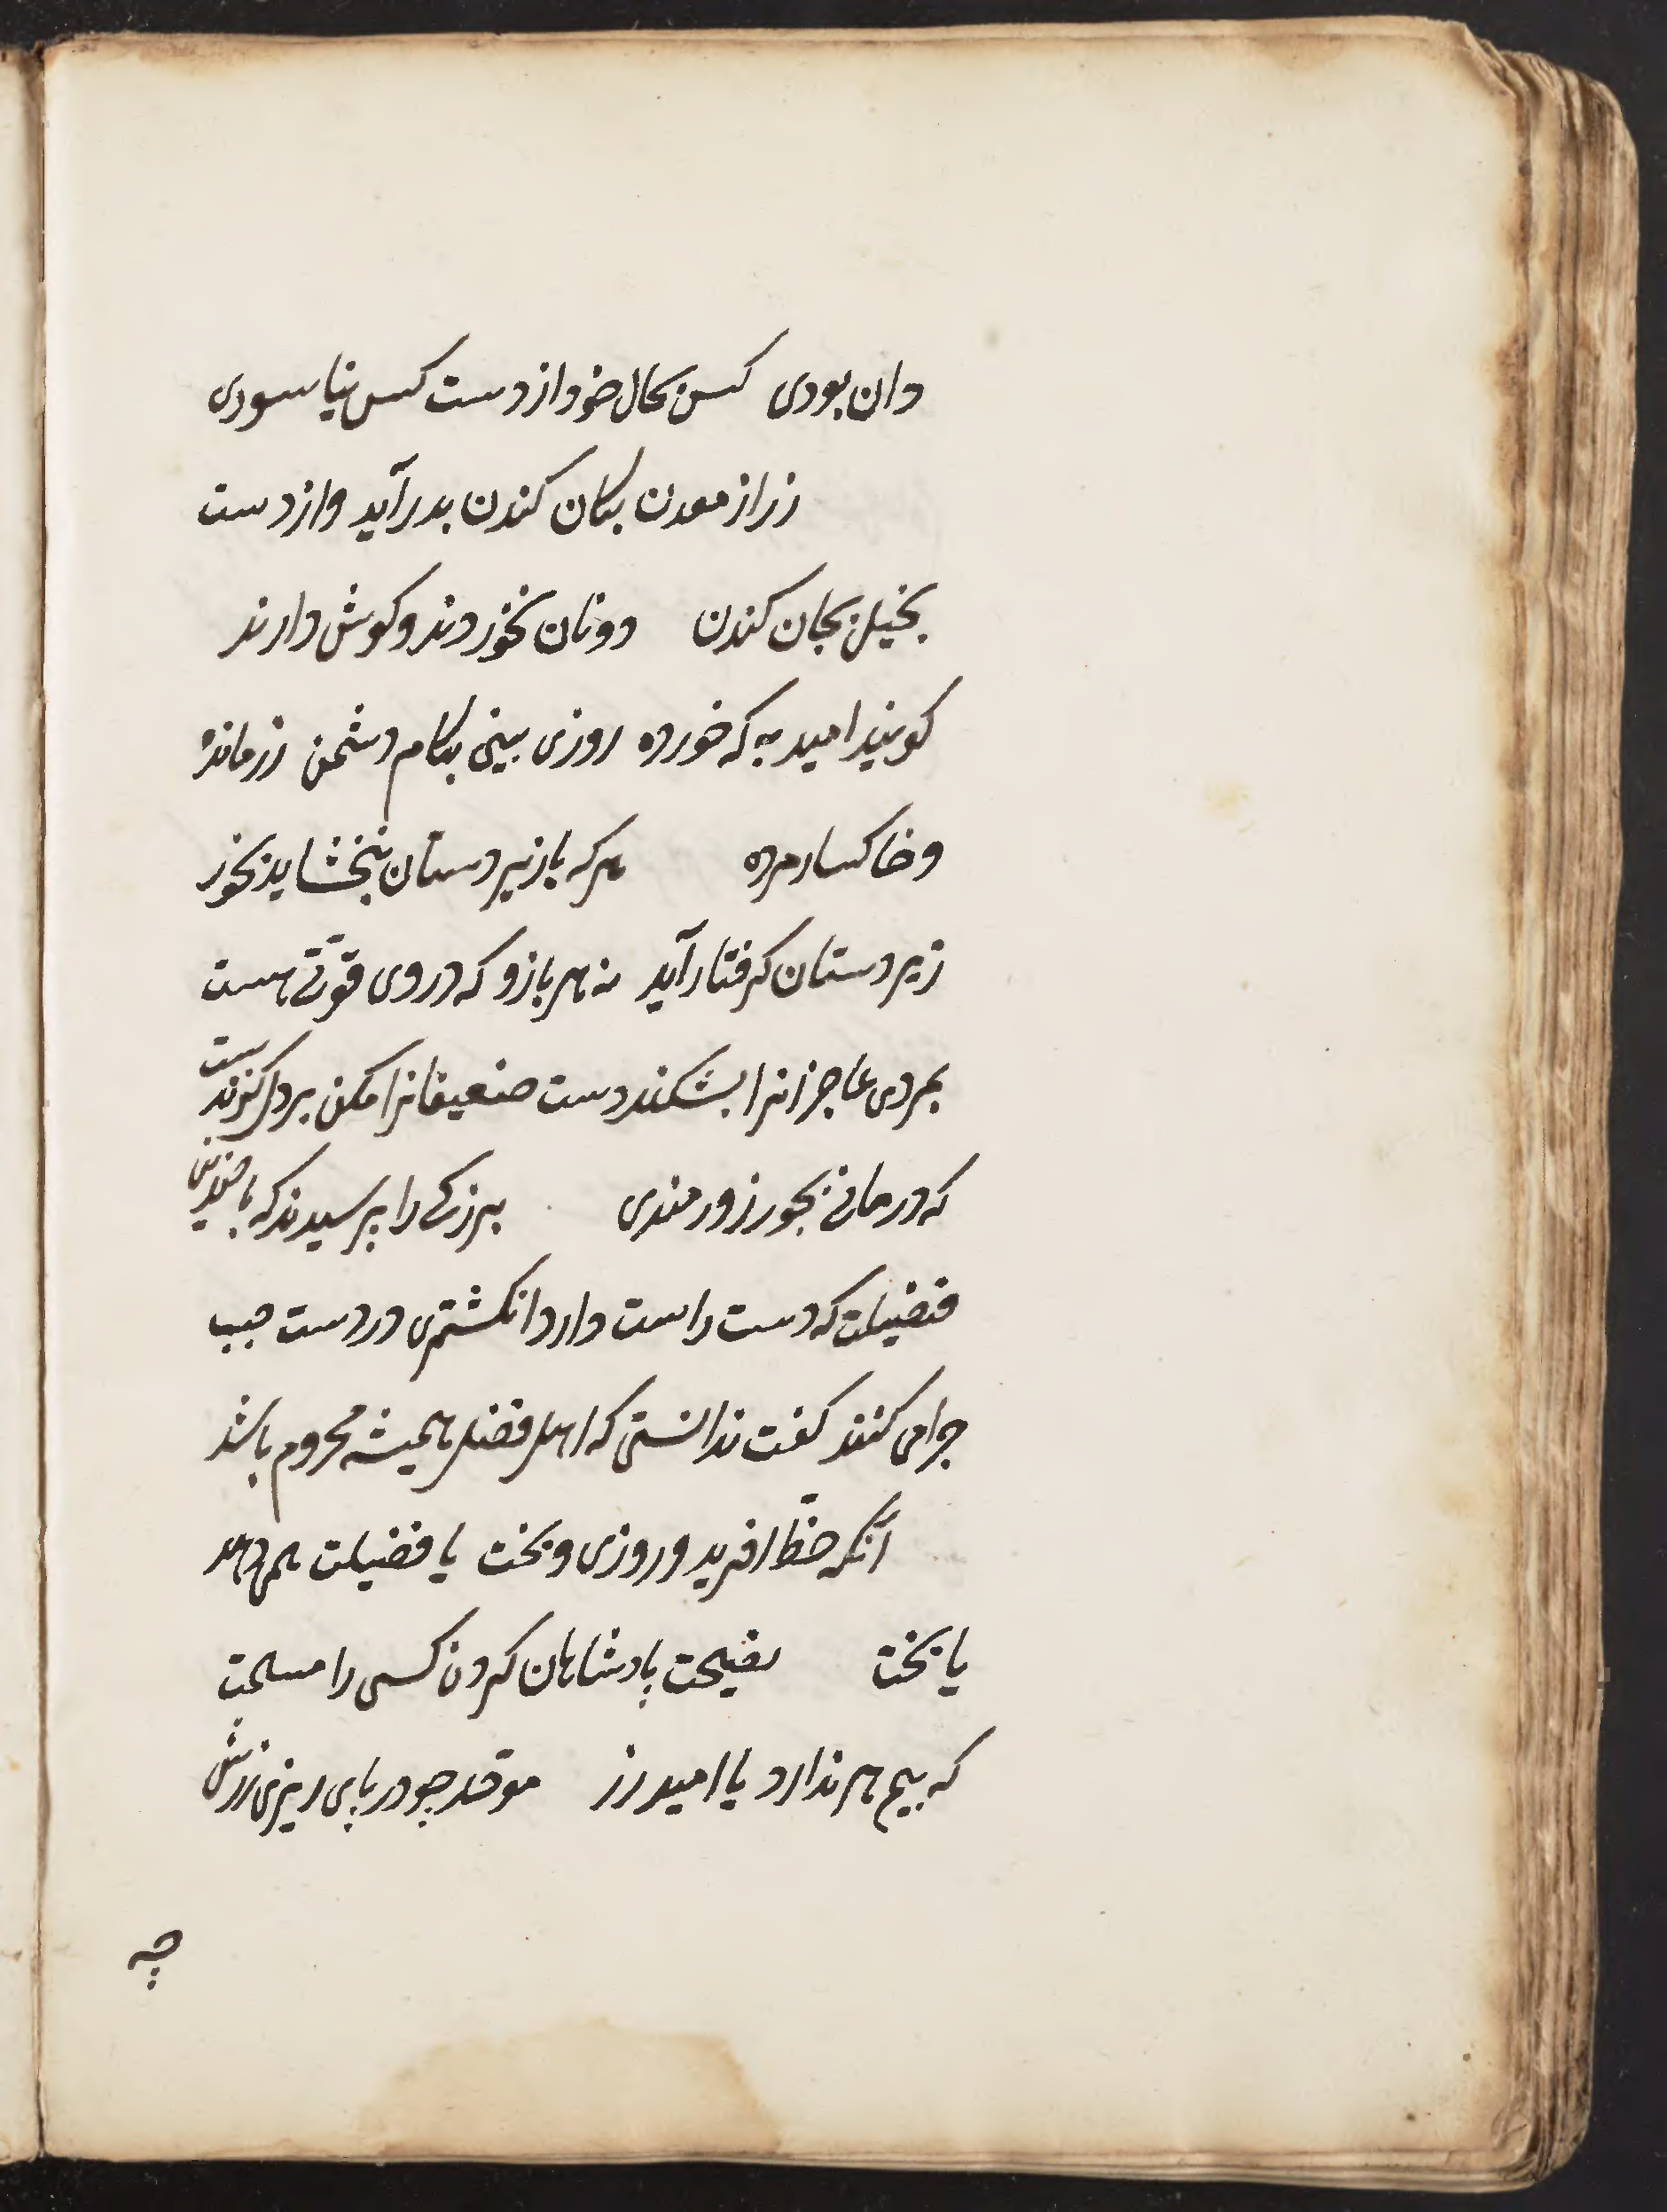 دان بودی کس بحال خود از دست کس نیاسودی
زر از معدن بکان کندن بدر آید و از دست
بخیل بجان کندن دونان نخورند و کوش دارند
کویند امید به که خورده روزی بینی بکام دشمن زر مانده
و خاکسار مرده هرکه بازیردستان نبخشاید بجور
زیردستان کرفتار آید نه هر بازو که در وی قوتی هست
بمردی عاجزانرا بشکند دست ضعیفانرا مکن بر دل کزندیست
که درمانی بجور زورمندی بزرکی را پرسیدند که با چندین
فضیلت که دست راست دارد انکشتری در دست چپ
چرا می کنند کفت ندانستی که اهل فضل همیشه محروم باشد
آنکه حظ افرید و روزی و بخت یا فضیلت همی دهد
یا بخت نصیحت پادشاهان کردن کسی را مسلمت
که بیم سر ندارد یا امید زر موحد چو در پای ریزی زرش
چه